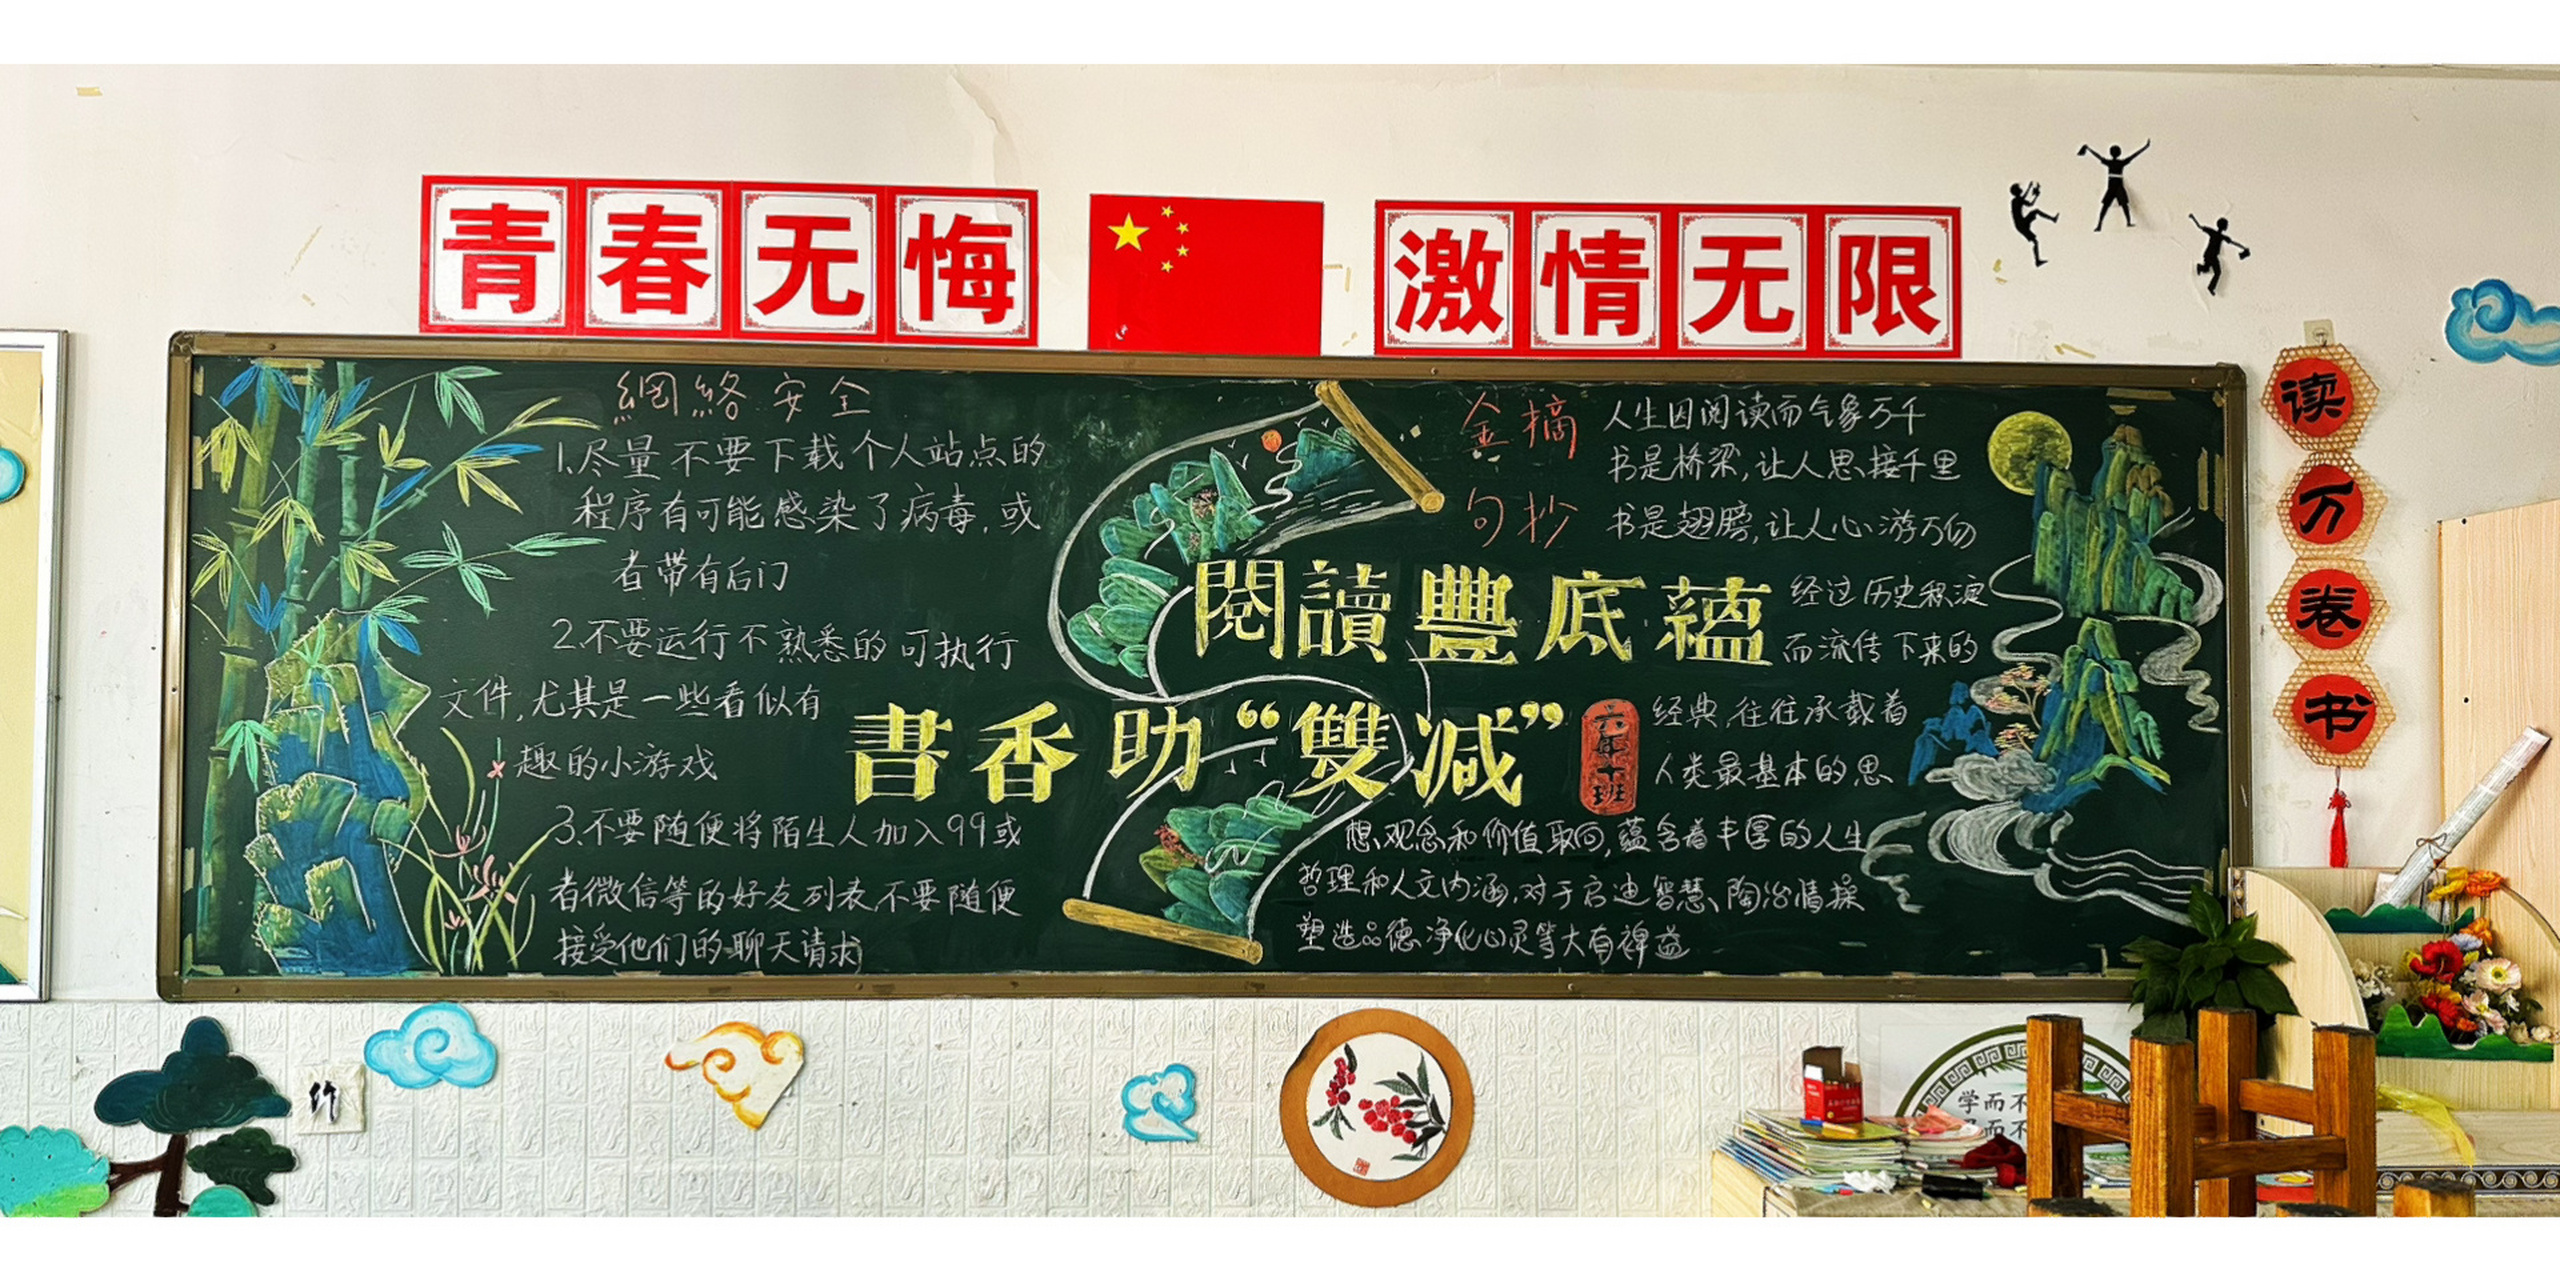 青春无悔
激情无限
網絡安全
1.尽量不要下载个人站点的
程序有可能感染了病毒,或
者带有后门
2.不要运行不熟悉的可执行
文件,尤其是一些看似有
趣的小游戏
3.不要随便将陌生人加入99或
者微信等的好友列表,不要随便
接受他们的聊天请求
閱讀豐底蘊
書香助“雙减”
六年十班
金摘
句抄
人生因阅读而气象万千
书是桥梁,让人思接千里
书是翅膀,让人心游万仞
经过历史积淀
而流传下来的
经典,往往承载着
人类最基本的思
想、观念和价值取向,蕴含着丰厚的人生
哲理和人文内涵,对于启迪智慧、陶冶情操
塑造品德、净化心灵等大有裨益
读万卷书
竹
学而不
而不